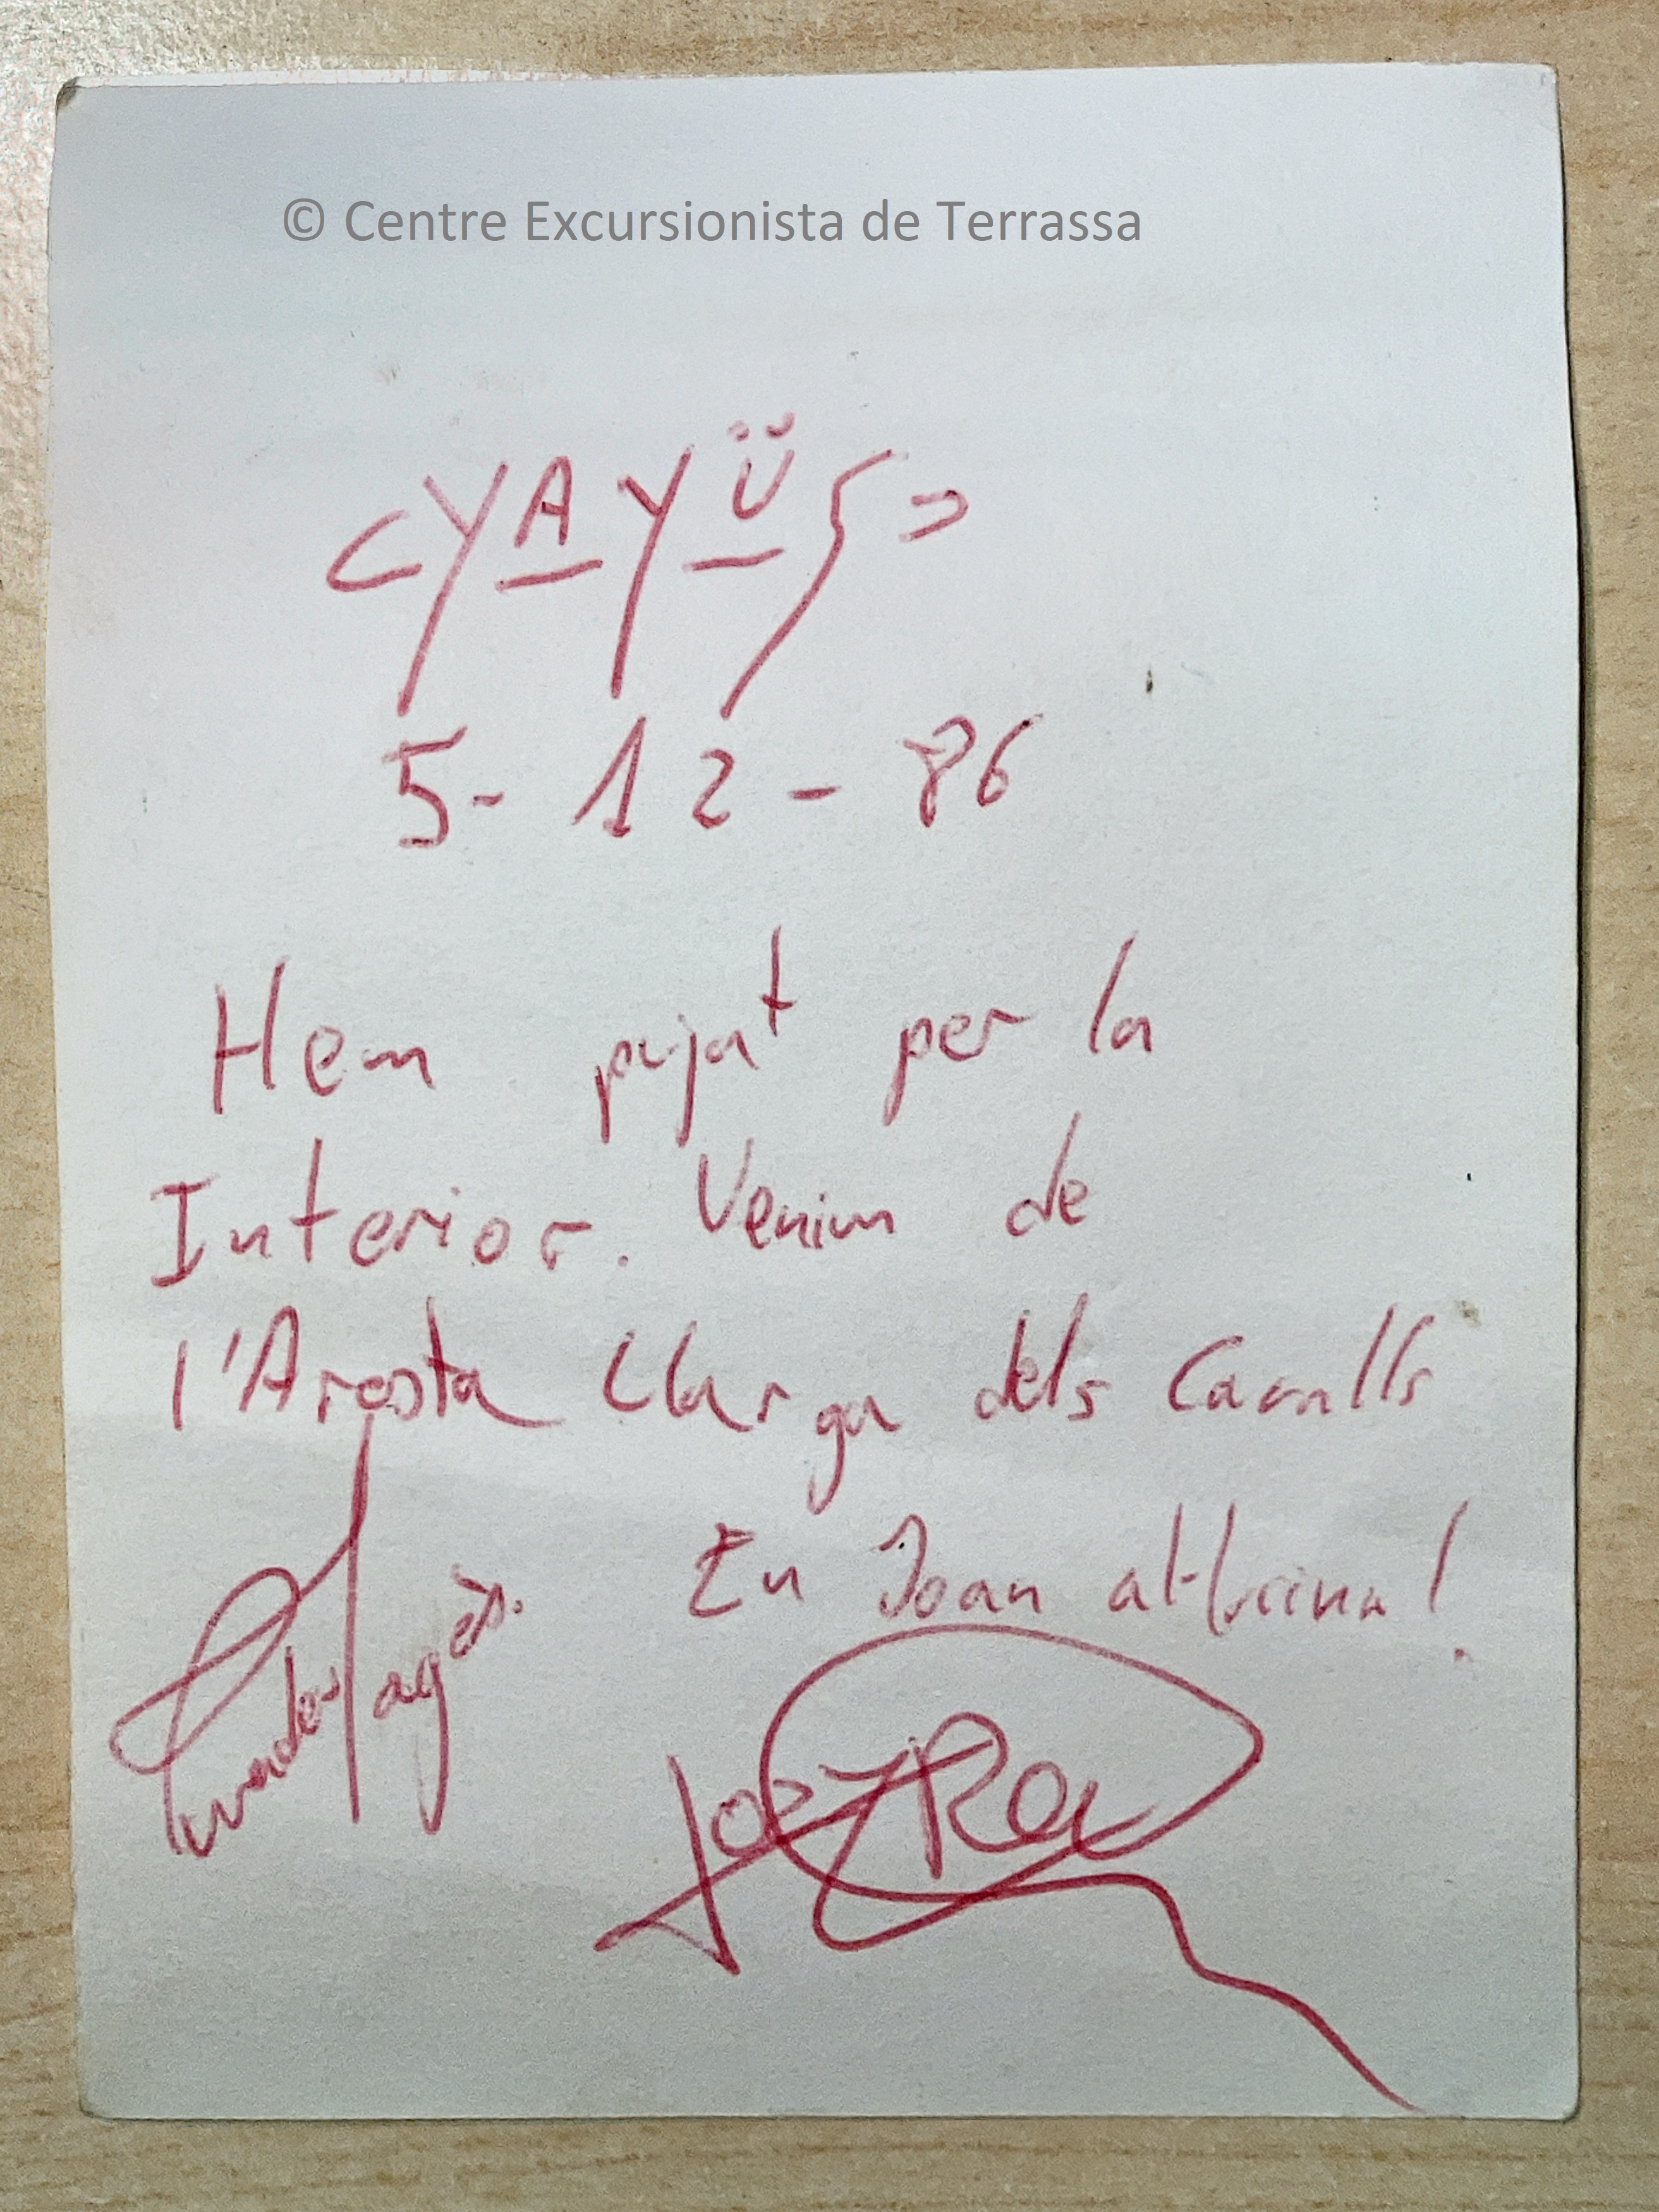 © Centre Excursionista de Terrassa
5-12-86
Hem pujat per la
Interior. Venim de
l'Aresta Llarga dels Cavalls
En Joan al·lucina!